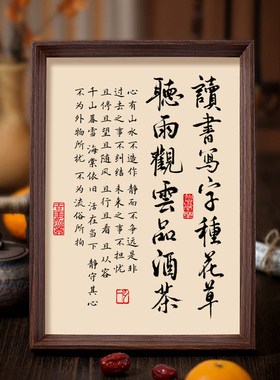 讀書写字種花草
聽雨觀雲品酒茶
心有山水不造作 靜而不爭遠是非
過去之事不糾結 未來之事不担憂
且停且望且随風 且行且看且從容
千山暮雪 海棠依旧 活在当下 靜守其心
不为外物所扰 不为流俗所拘